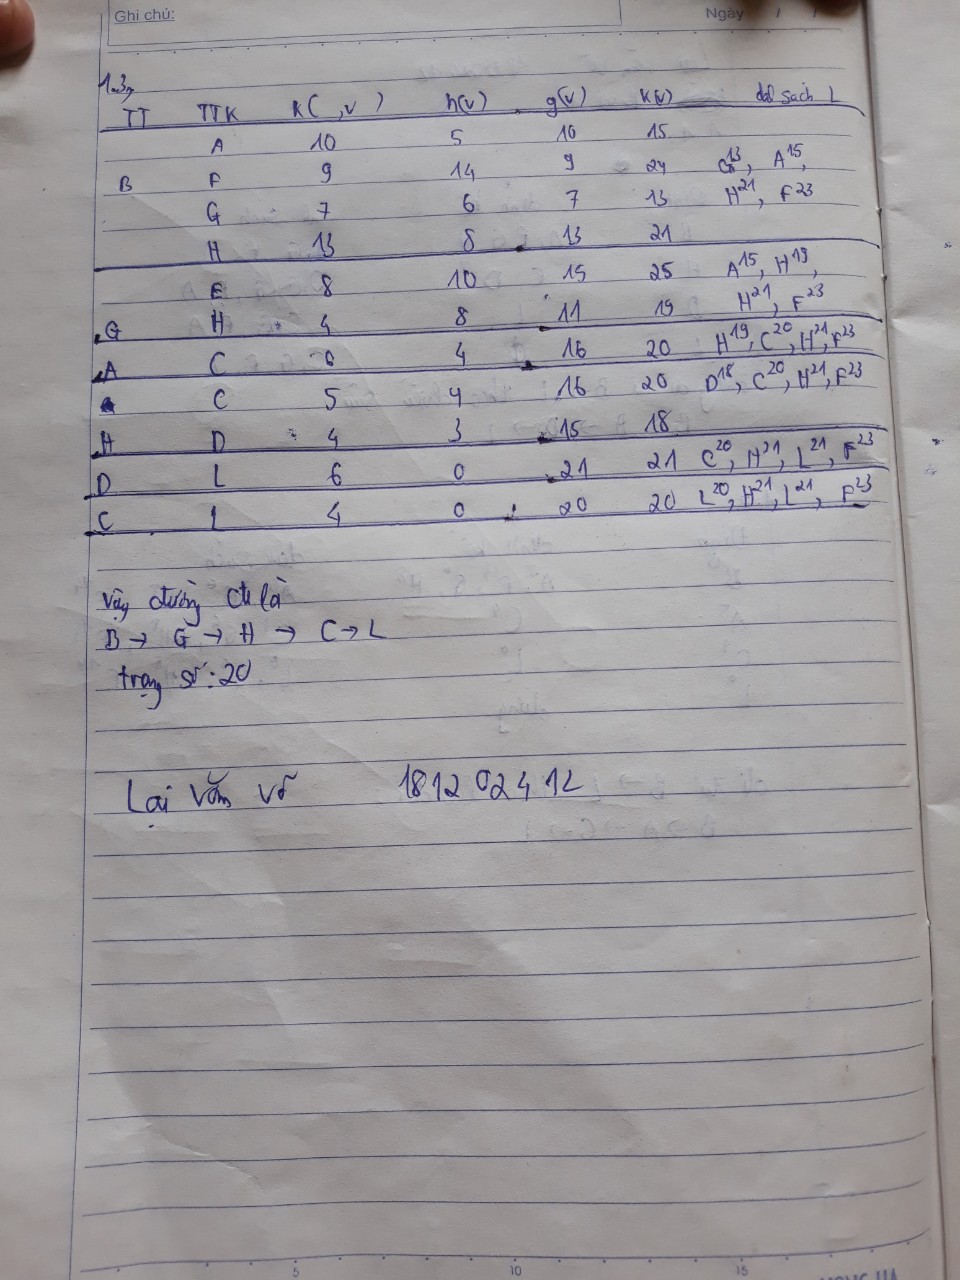 Ghi chú:
Ngày / /
1.3,
TT TTK k( ,v ) h(v) g(v) k(v) dah sach L
A 10 5 10 15
B F 9 14 9 24 G13, A15,
G 7 6 7 13 H21, F23
H 13 8 13 21
E 8 10 15 25 A15, H19,
G H 4 8 11 19 H21, F23
A C 6 4 16 20 H19, C20, H21, F23
C 5 4 16 20 D18, C20, H21, F23
H D 4 3 15 18
D L 6 0 21 21 C20, H21, L21, F23
C L 4 0 20 20 L20, H21, L21, F23
Vậy đường đi là
B → G → H → C → L
trọng số: 20
Lại văn võ 1812024 12
5 10 15